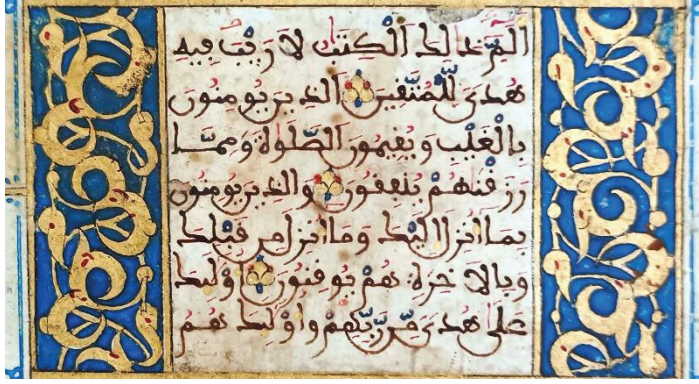 الم ذالك الكتب لا ريب فيه
هدى للمتقين الذين يومنون
بالغيب ويقيمون الصلوة ومما
رزقنهم ينفقون والذين يومنون
بما أنزل إليك وما أنزل من قبلك
وبالاخرة هم يوقنون أولئك
على هدى من ربهم وأولئك هم